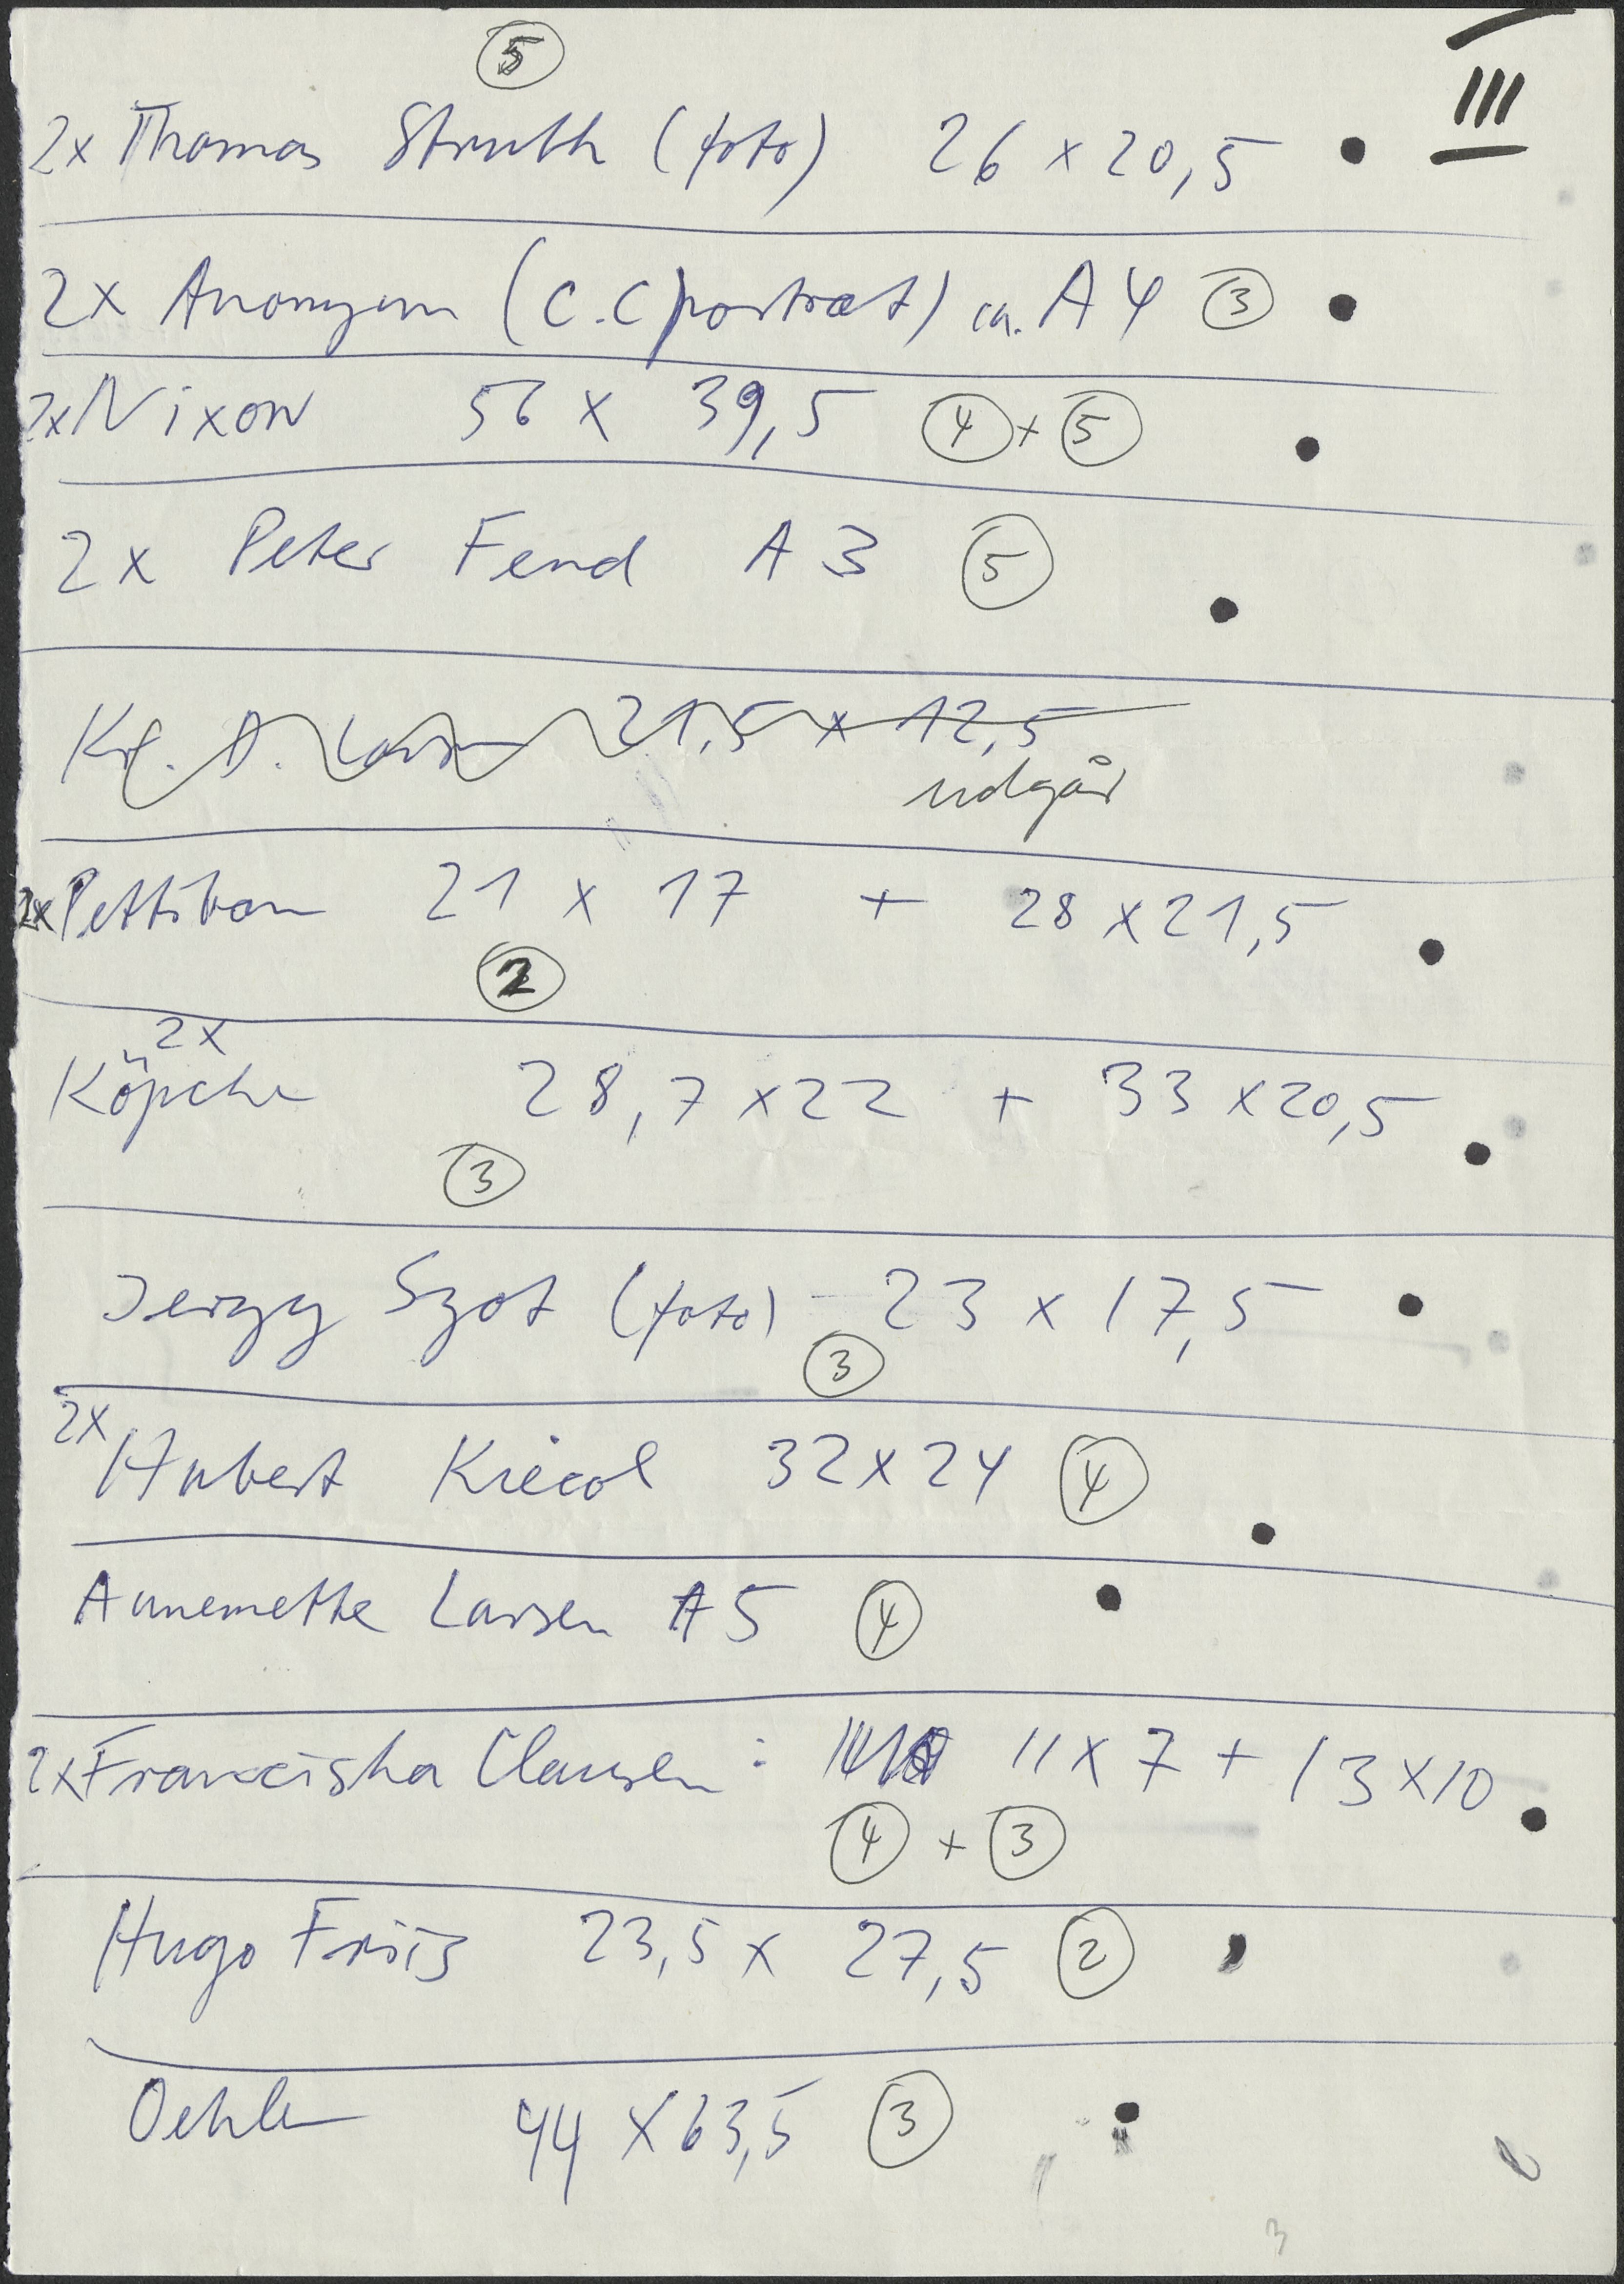 ⑤ III
2x Thomas Struth (foto) 26 x 20,5 •
2x Anonym (C.C portræt) ca. A4 ③ •
2x Nixon 56 x 39,5 ④ + ⑤ •
2x Peter Fend A3 ⑤ •
Kr. D. Larsen 21,5 x 12,5
udgår
2x Pettibon 21 x 17 + 28 x 21,5 •
②
2x
Köpcke 28,7 x 22 + 33 x 20,5 •
③
Jerzy Szot (foto) - 23 x 17,5 •
③
2x
Hubert Kiecol 32 x 24 ④ •
Annemette Larsen A5 ④ •
2x Franciska Clausen : 11 x 7 + 13 x 10 •
④ + ③
Hugo Friis 23,5 x 27,5 ② •
Oehlen 44 x 63,5 ③ •
3